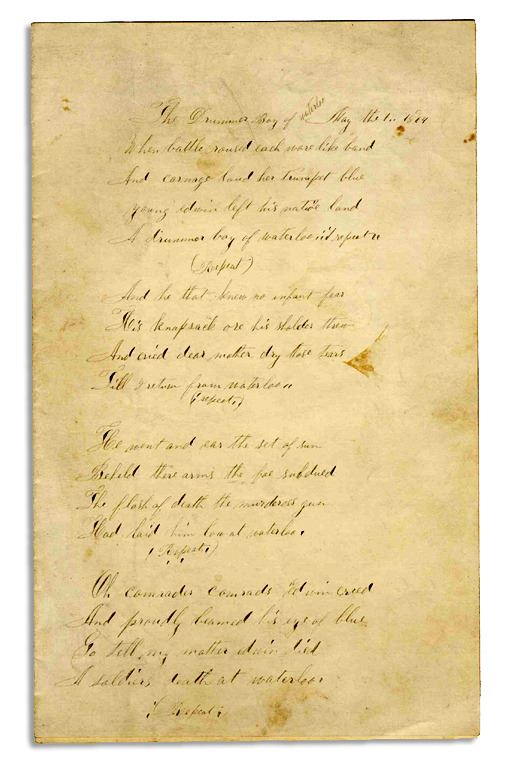 The Drummer Boy of waterloo May the 1.. 1864
When battle roused each wore like band
And carnage loud her trumpet blue
young Edwin left his native land
A drummer boy of waterloo repeat
(Repeat)
And he that knew no infant fear
His knapsack ore his sholder threw
And cried dear mother dry those tears
Till I return from waterloo
(repeat)
He went and ear the set of sun
Beheld there arms the foe subdued
The flash of death the murderous gun
Had laid him low at waterloo
(Repeat)
Oh comrades comrads Edwin cried
And proudly beamed his eye of blue
Go tell my mother edwin died
A soldiers death at waterloo
Repeat